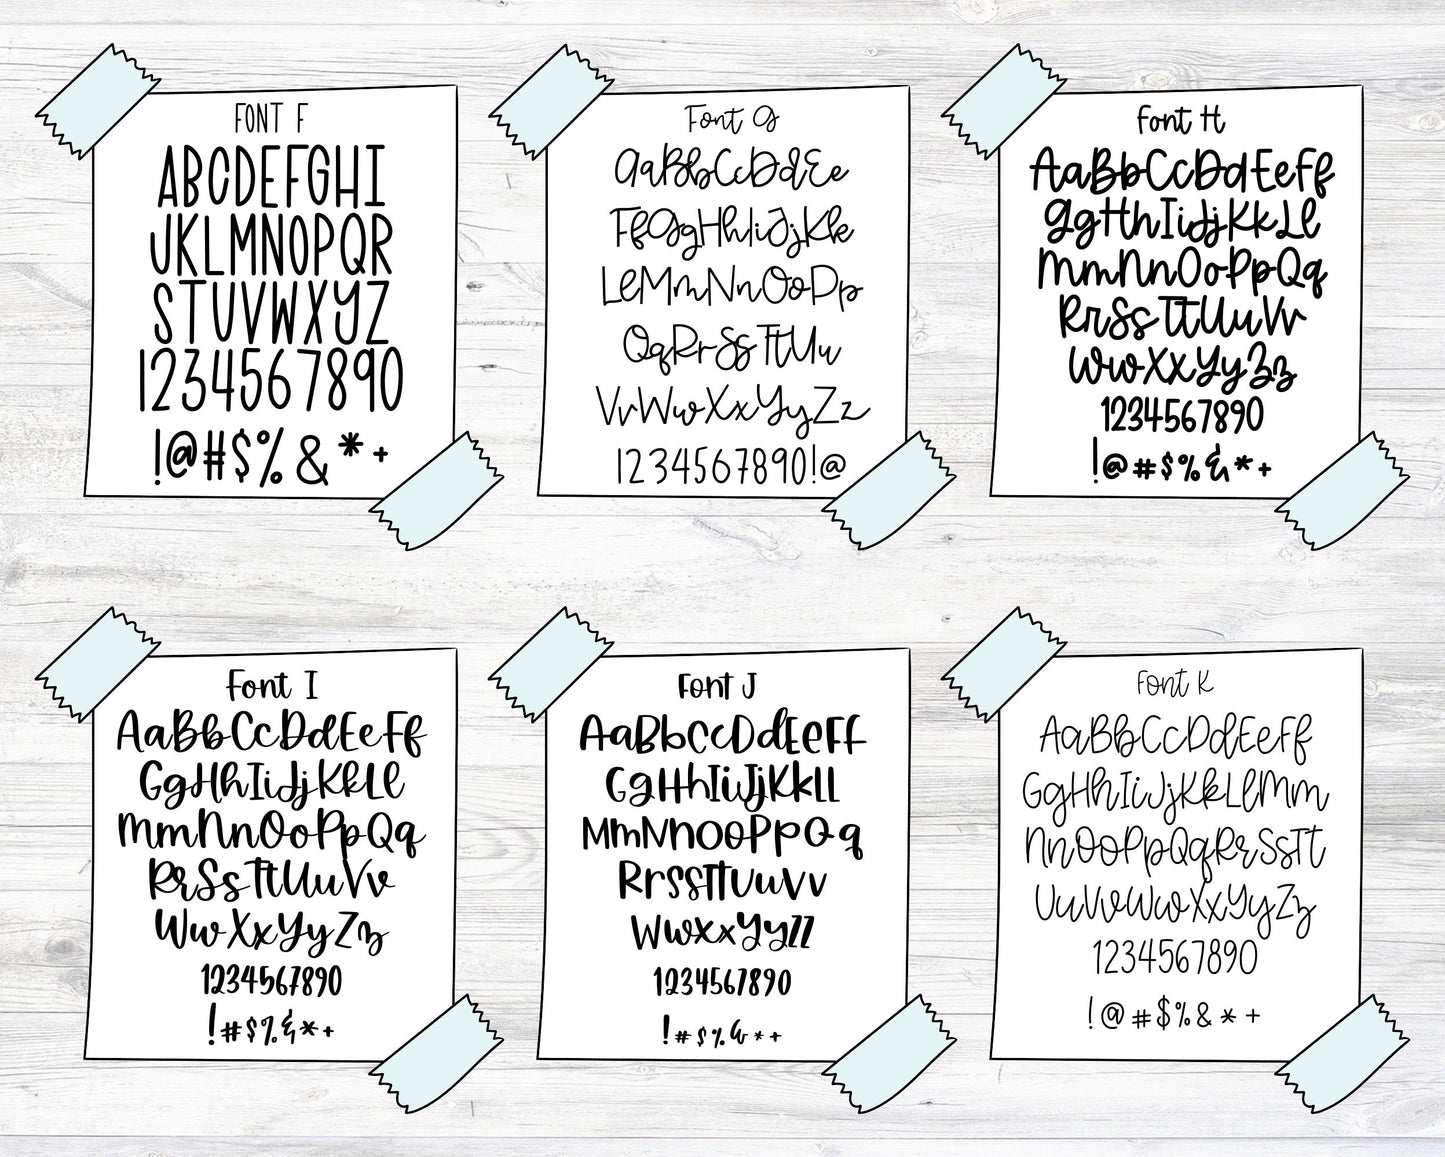 FONT F
ABCDEFGHI
JKLMNOPQR
STUVWXYZ
1234567890
!@#$%&*+
Font G
AaBbCcDdEe
FfGgHhIiJjKk
LlMmNnOoPp
QqRrSsTtUu
VvWwXxYyZz
1234567890!@
Font H
AaBbCcDdEeFf
GgHhIiJjKkLl
MmNnOoPpQq
RrSsTtUuVv
WwXxYyZz
1234567890
!@#$%&*+
Font I
AaBbCcDdEeFf
GgHhIiJjKkLl
MmNnOoPpQq
RrSsTtUuVv
WwXxYyZz
1234567890
!#$%&*+
Font J
AaBbCcDdEeFf
GgHhIiJjKkLl
MmNnOoPpQq
RrSsTtUuVv
WwXxYyZz
1234567890
!#$%&*+
Font K
AaBbCcDdEeFf
GgHhIiJjKkLlMm
NnOoPpQqRrSsTt
UuVvWwXxYyZz
1234567890
!@#$%&*+